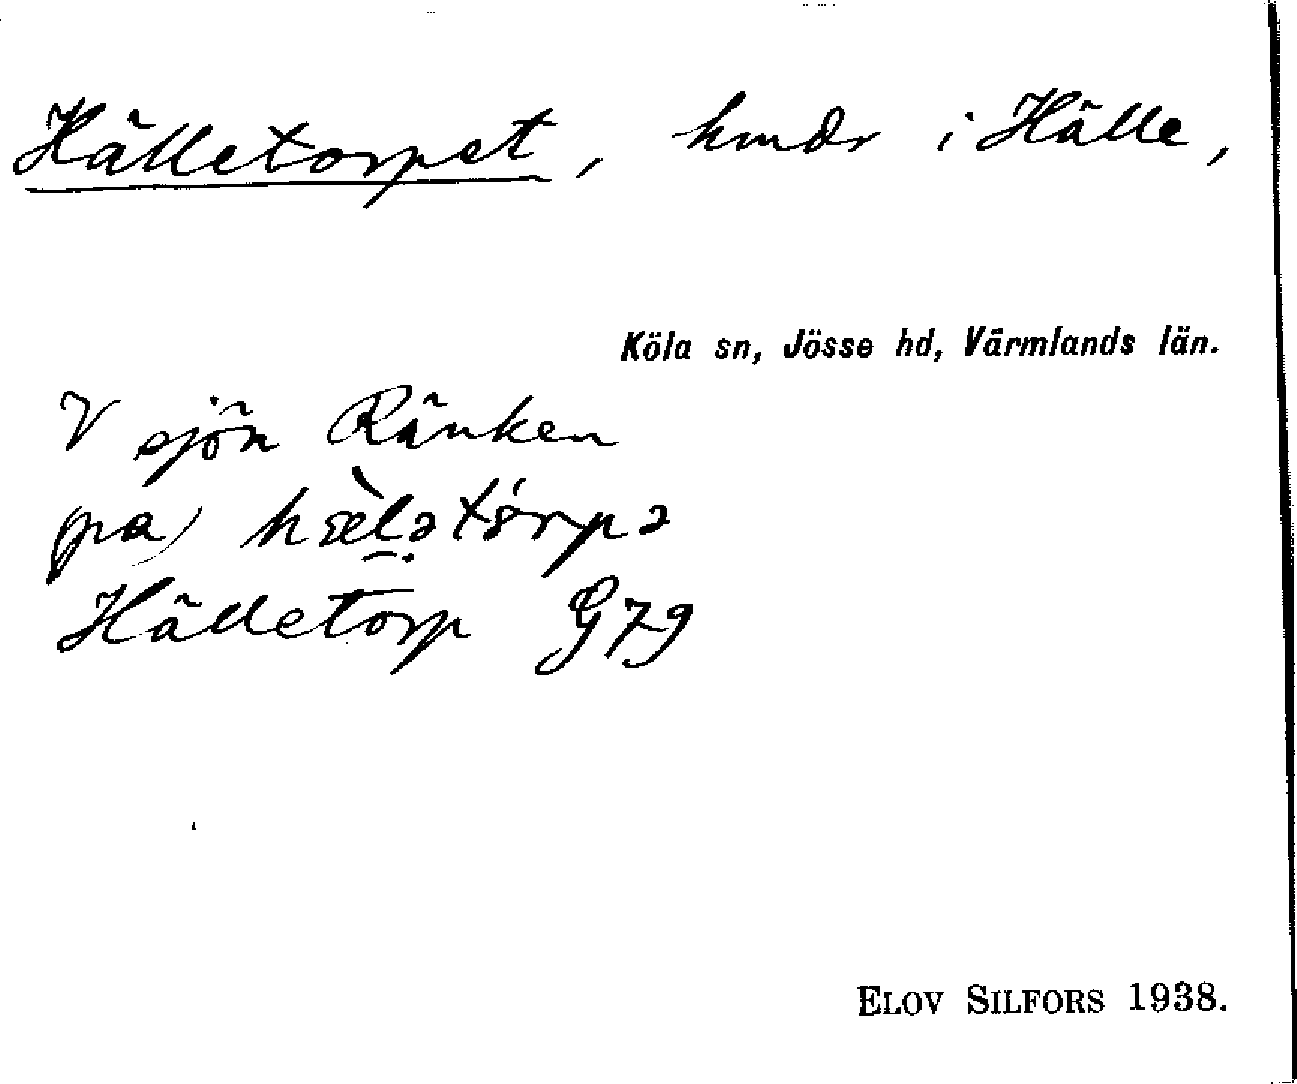 Hälletorpet, hmdr i Hälle,
Köla sn, Jösse hd, Värmlands län.
V sjön Ränken
(pa) hæ̀lətórpə
Hälletorp G79
ELOV SILFORS 1938.